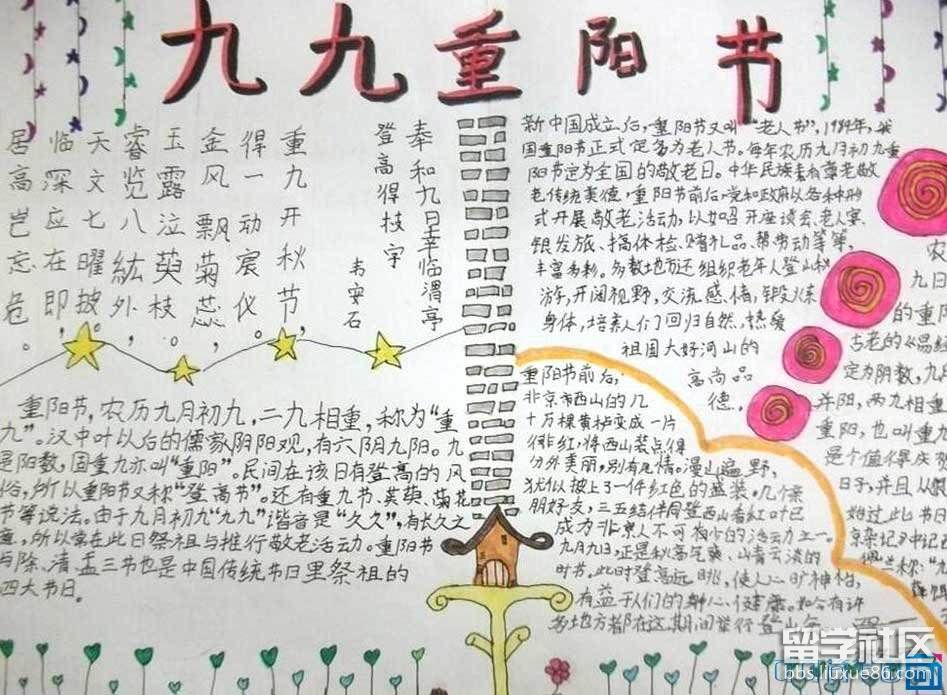 九九重阳节
奉和九日幸临渭亭
登高得枝字
韦安石
重九开秋节，
得一动宸仪。
金风飘菊蕊，
玉露泣萸枝。
睿览八紘外，
天文七曜披。
临深应在即，
居高岂忘危。
新中国成立后，重阳节又叫“老人节”，1989年，我
国重阳节正式定为老人节。每年农历九月初九重
阳节定为全国的敬老日。中华民族素有尊老敬
老传统美德，重阳节前后，党和政府以各种形
式开展敬老活动，如召开座谈会、老人宴、
银发旅、搞体检、赠礼品、帮劳动等等，
丰富多彩。多数地方还组织老年人登山秋
游，开阔视野，交流感情，锻炼
身体，培养人们回归自然，热爱
祖国大好河山的
高尚品
德。
重阳节，农历九月初九，二九相重，称为“重
九”。汉中叶以后的儒家阴阳观，有六阴九阳。九
是阳数，固重九亦叫“重阳”。民间在该日有登高的风
俗，所以重阳节又称“登高节”。还有重九节、茱萸、菊花
节等说法。由于九月初九“九九”谐音是“久久”，有长久之
意，所以常在此日祭祖与推行敬老活动。重阳节
与除、清、盂三节也是中国传统节日里祭祖的
四大节日。
重阳节前后，
北京市西山的几
十万棵黄栌变成一片
绯红，将西山装点得
分外美丽，别有风情。漫山遍野，
犹似披上了一件红色的盛装。几个亲
朋好友，三五结伴同登西山看红叶已
成为北京人不可缺少的活动之一。
九月九日，正是秋高气爽、山青云淡的
时节。此时登高远眺，使人心旷神怡，
有益于人们的身心健康。如今有许
多地方都在这期间举行登山
农
九日
的重阳
古老的《易经
定为阴数，九
并阳，两九相重
重阳，也叫重
是个值得庆祝
日子，并且从
始过此节日
京杂记》中记
留学社区
bbs.liuxue86.com